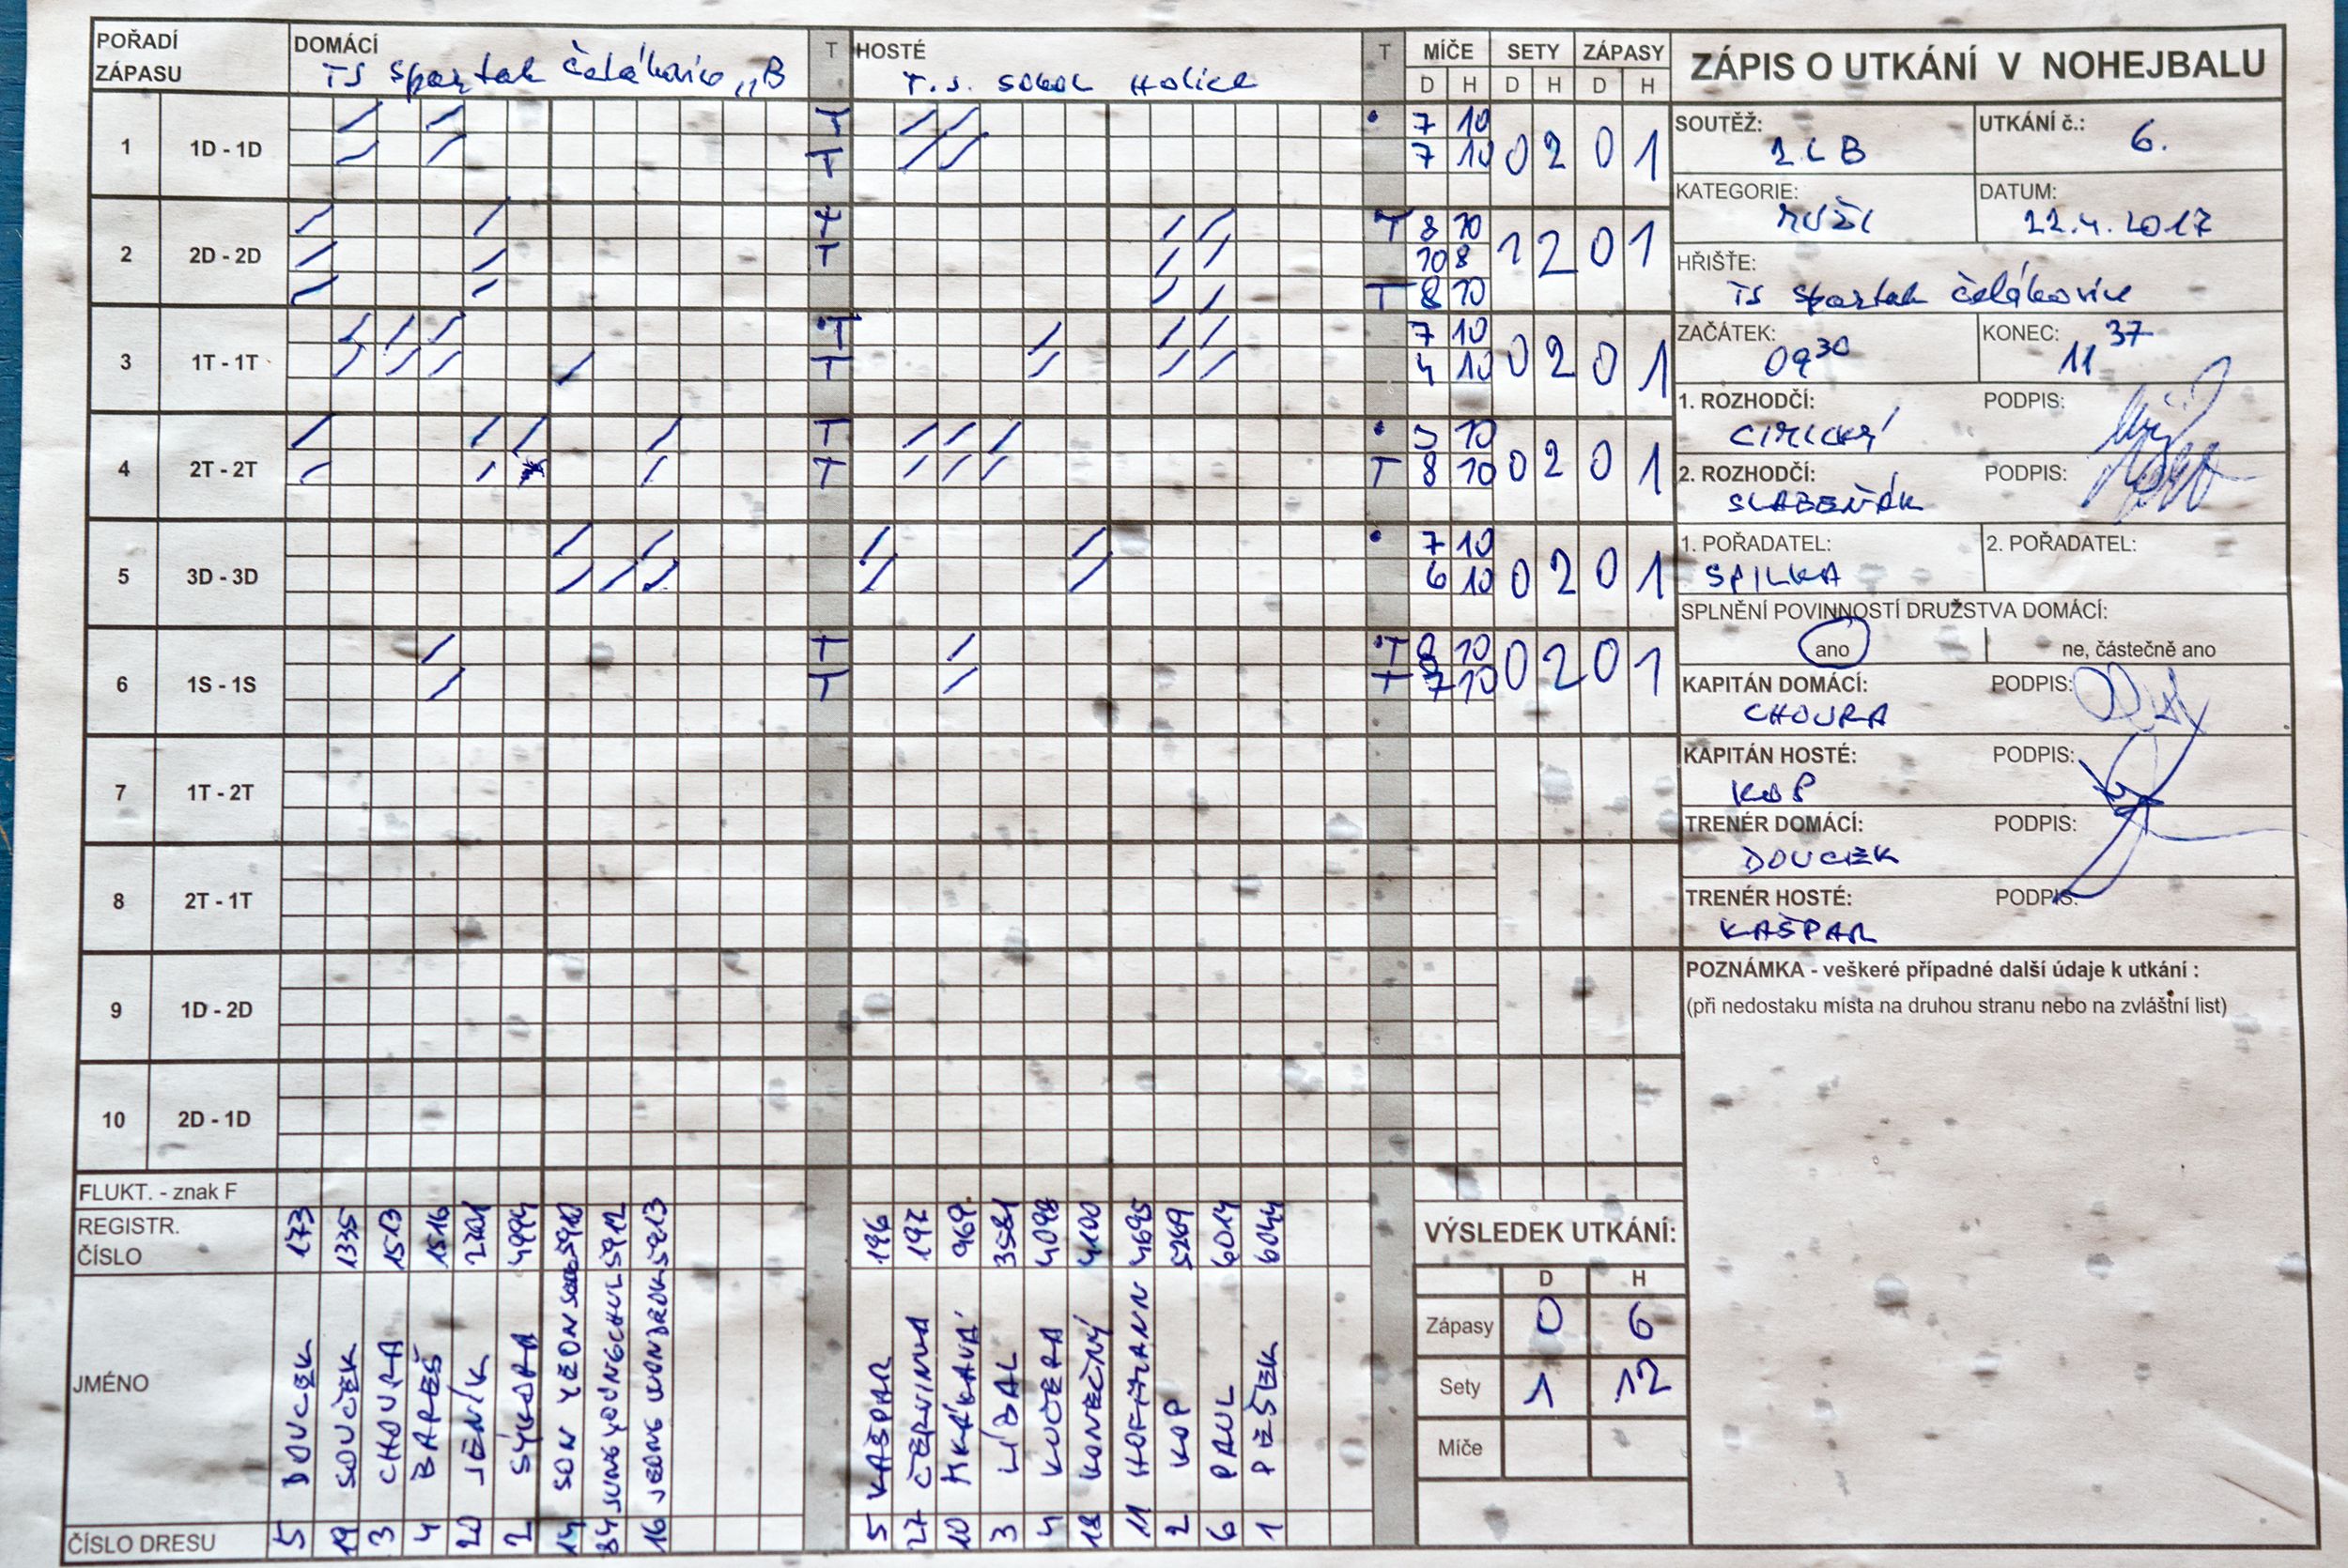 POŘADÍ ZÁPASU
DOMÁCÍ
TJ Spartak Čelákovice „B
T
HOSTÉ
T.J. SOKOL HOLICE
T
MÍČE SETY ZÁPASY
D H D H D H
1 1D - 1D T 7 10 0 2 0 1
T 7 10
2 2D - 2D T T 8 10 1 2 0 1
T 10 8
T 8 10
3 1T - 1T T 7 10 0 2 0 1
T 4 10
4 2T - 2T T 5 10 0 2 0 1
T T 8 10
5 3D - 3D 7 10 0 2 0 1
6 10
6 1S - 1S T T 8 10 0 2 0 1
T T 7 10
7 1T - 2T
8 2T - 1T
9 1D - 2D
10 2D - 1D
FLUKT. - znak F
REGISTR. ČÍSLO
173 1335 1513 1516 4994 5912 5913
196 197 969. 3581 4098 4100 4695 5269 6014 6044
JMÉNO
DOUCEK SOUČEK CHOURA BAREŠ JENÍK SÝKORA SON YEON JUNG YOUNGCHUL JEONG
KAŠPAR ČERVINKA LÍBAL KUČERA KONEČNÝ HOFFMANN KOP PAUL PEŠEK
ČÍSLO DRESU
5 19 3 4 20 2 14 84 16
5 27 10 3 4 18 11 2 6 1
ZÁPIS O UTKÁNÍ V NOHEJBALU
SOUTĚŽ: 2.L B
UTKÁNÍ č.: 6.
KATEGORIE: MUŽI
DATUM: 22.4.2017
HŘIŠTE:
TJ Spartak Čelákovice
ZAČÁTEK: 09 30
KONEC: 11 37
1. ROZHODČÍ: PODPIS:
CIMICKÝ
2. ROZHODČÍ: PODPIS:
SLABEŇÁK
1. POŘADATEL: 2. POŘADATEL:
SPILKA
SPLNĚNÍ POVINNOSTÍ DRUŽSTVA DOMÁCÍ:
ano ne, částečně ano
KAPITÁN DOMÁCÍ: PODPIS:
CHOURA
KAPITÁN HOSTÉ: PODPIS:
KOP
TRENÉR DOMÁCÍ: PODPIS:
DOUCEK
TRENÉR HOSTÉ: PODPIS:
KAŠPAR
POZNÁMKA - veškeré případné další údaje k utkání :
(při nedostaku místa na druhou stranu nebo na zvláštní list)
VÝSLEDEK UTKÁNÍ:
D H
Zápasy 0 6
Sety 1 12
Míče